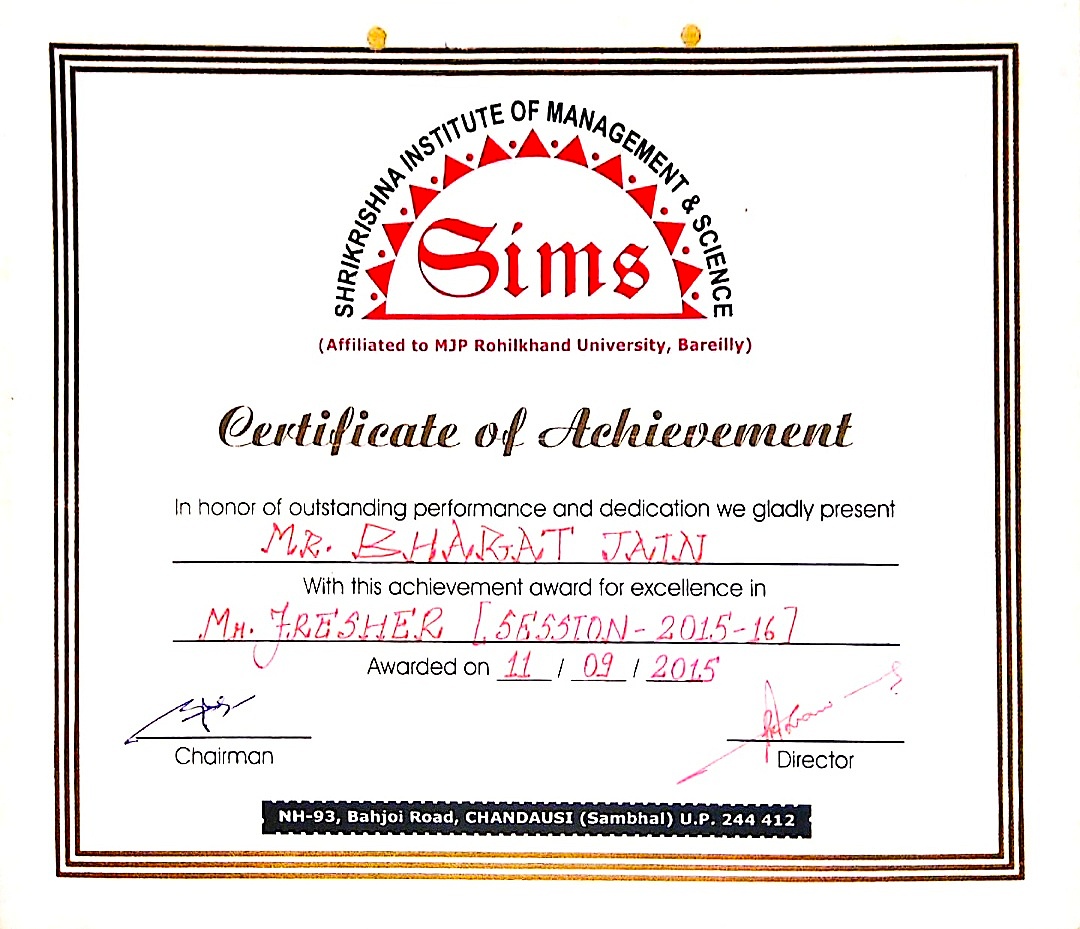 SHRIKRISHNA INSTITUTE OF MANAGEMENT & SCIENCE
Sims
(Affiliated to MJP Rohilkhand University, Bareilly)
Certificate of Achievement
In honor of outstanding performance and dedication we gladly present
MR. BHARAT JAIN
With this achievement award for excellence in
MR. FRESHER [SESSION-2015-16]
Awarded on 11 / 09 / 2015
Chairman
Director
NH-93, Bahjoi Road, CHANDAUSI (Sambhal) U.P. 244 412